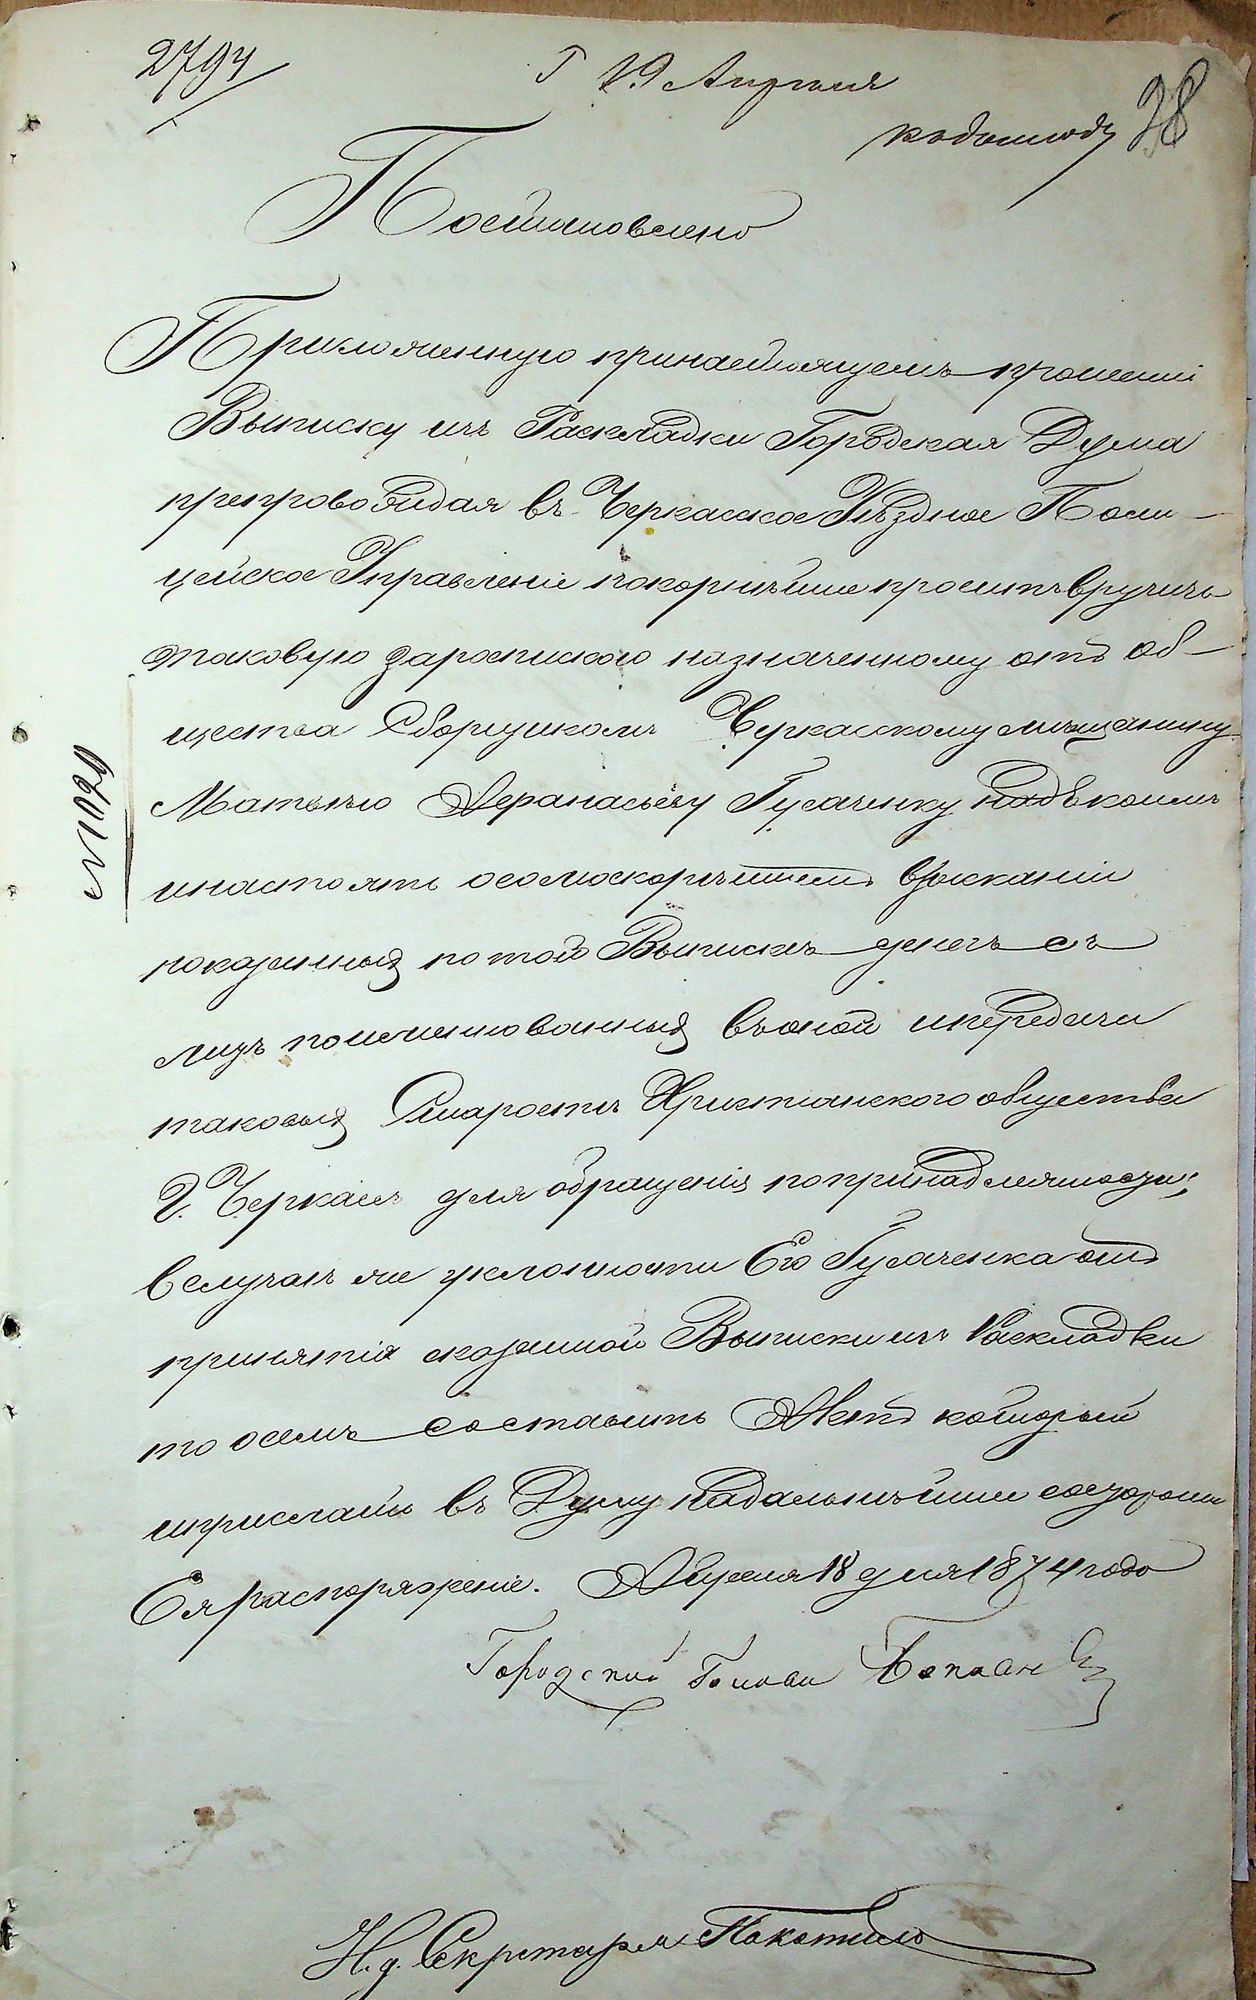 2794
19 Апреля
28
Постановлено
Приложенную при настоящемъ прошеніи
Выписку изъ Раскладки Городская Дума
препровождая въ Черкасское Уѣздное Поли-
цейское Управленіе покорнѣйше проситъ вручить
таковую за роспискою назначенному отъ об-
щества Сборщикомъ Черкасскому мѣщанину
№ 1029
Матвѣю Афанасьеву Гусаченку
и настоять о самоскорѣйшемъ взысканіи
показанныхъ по той Выпискѣ денегъ съ
лицъ поименованныхъ въ оной и передачи
таковыхъ Старостѣ Христіанскаго общества
Г. Черкасъ для обращенія по принадлежности;
в случаѣ же уклонности Его Гусаченка отъ
принятія сказанной Выписки изъ Раскладки
то о семъ составить Актъ который
и прислать въ Думу на дальнѣйшее со стороны
Ея распоряженіе. Апреля 18 дня 1874 года
Городской Голова
И. д. Секретаря